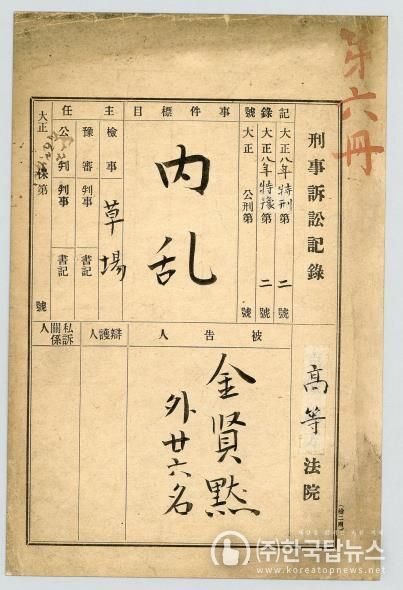 第六冊
刑事訴訟記錄
高等法院
記錄號
大正八年特刑第二號
大正八年特豫第二號
大正 公刑第 號
事件標目
內乱
主任
檢事 草場
豫審 判事 書記
公判 判事 書記
大正
保第 號
被告人
金賢黙
外廿六名
辯護人
私訴關係人
(주)한국탑뉴스
www.koreatopnews.net